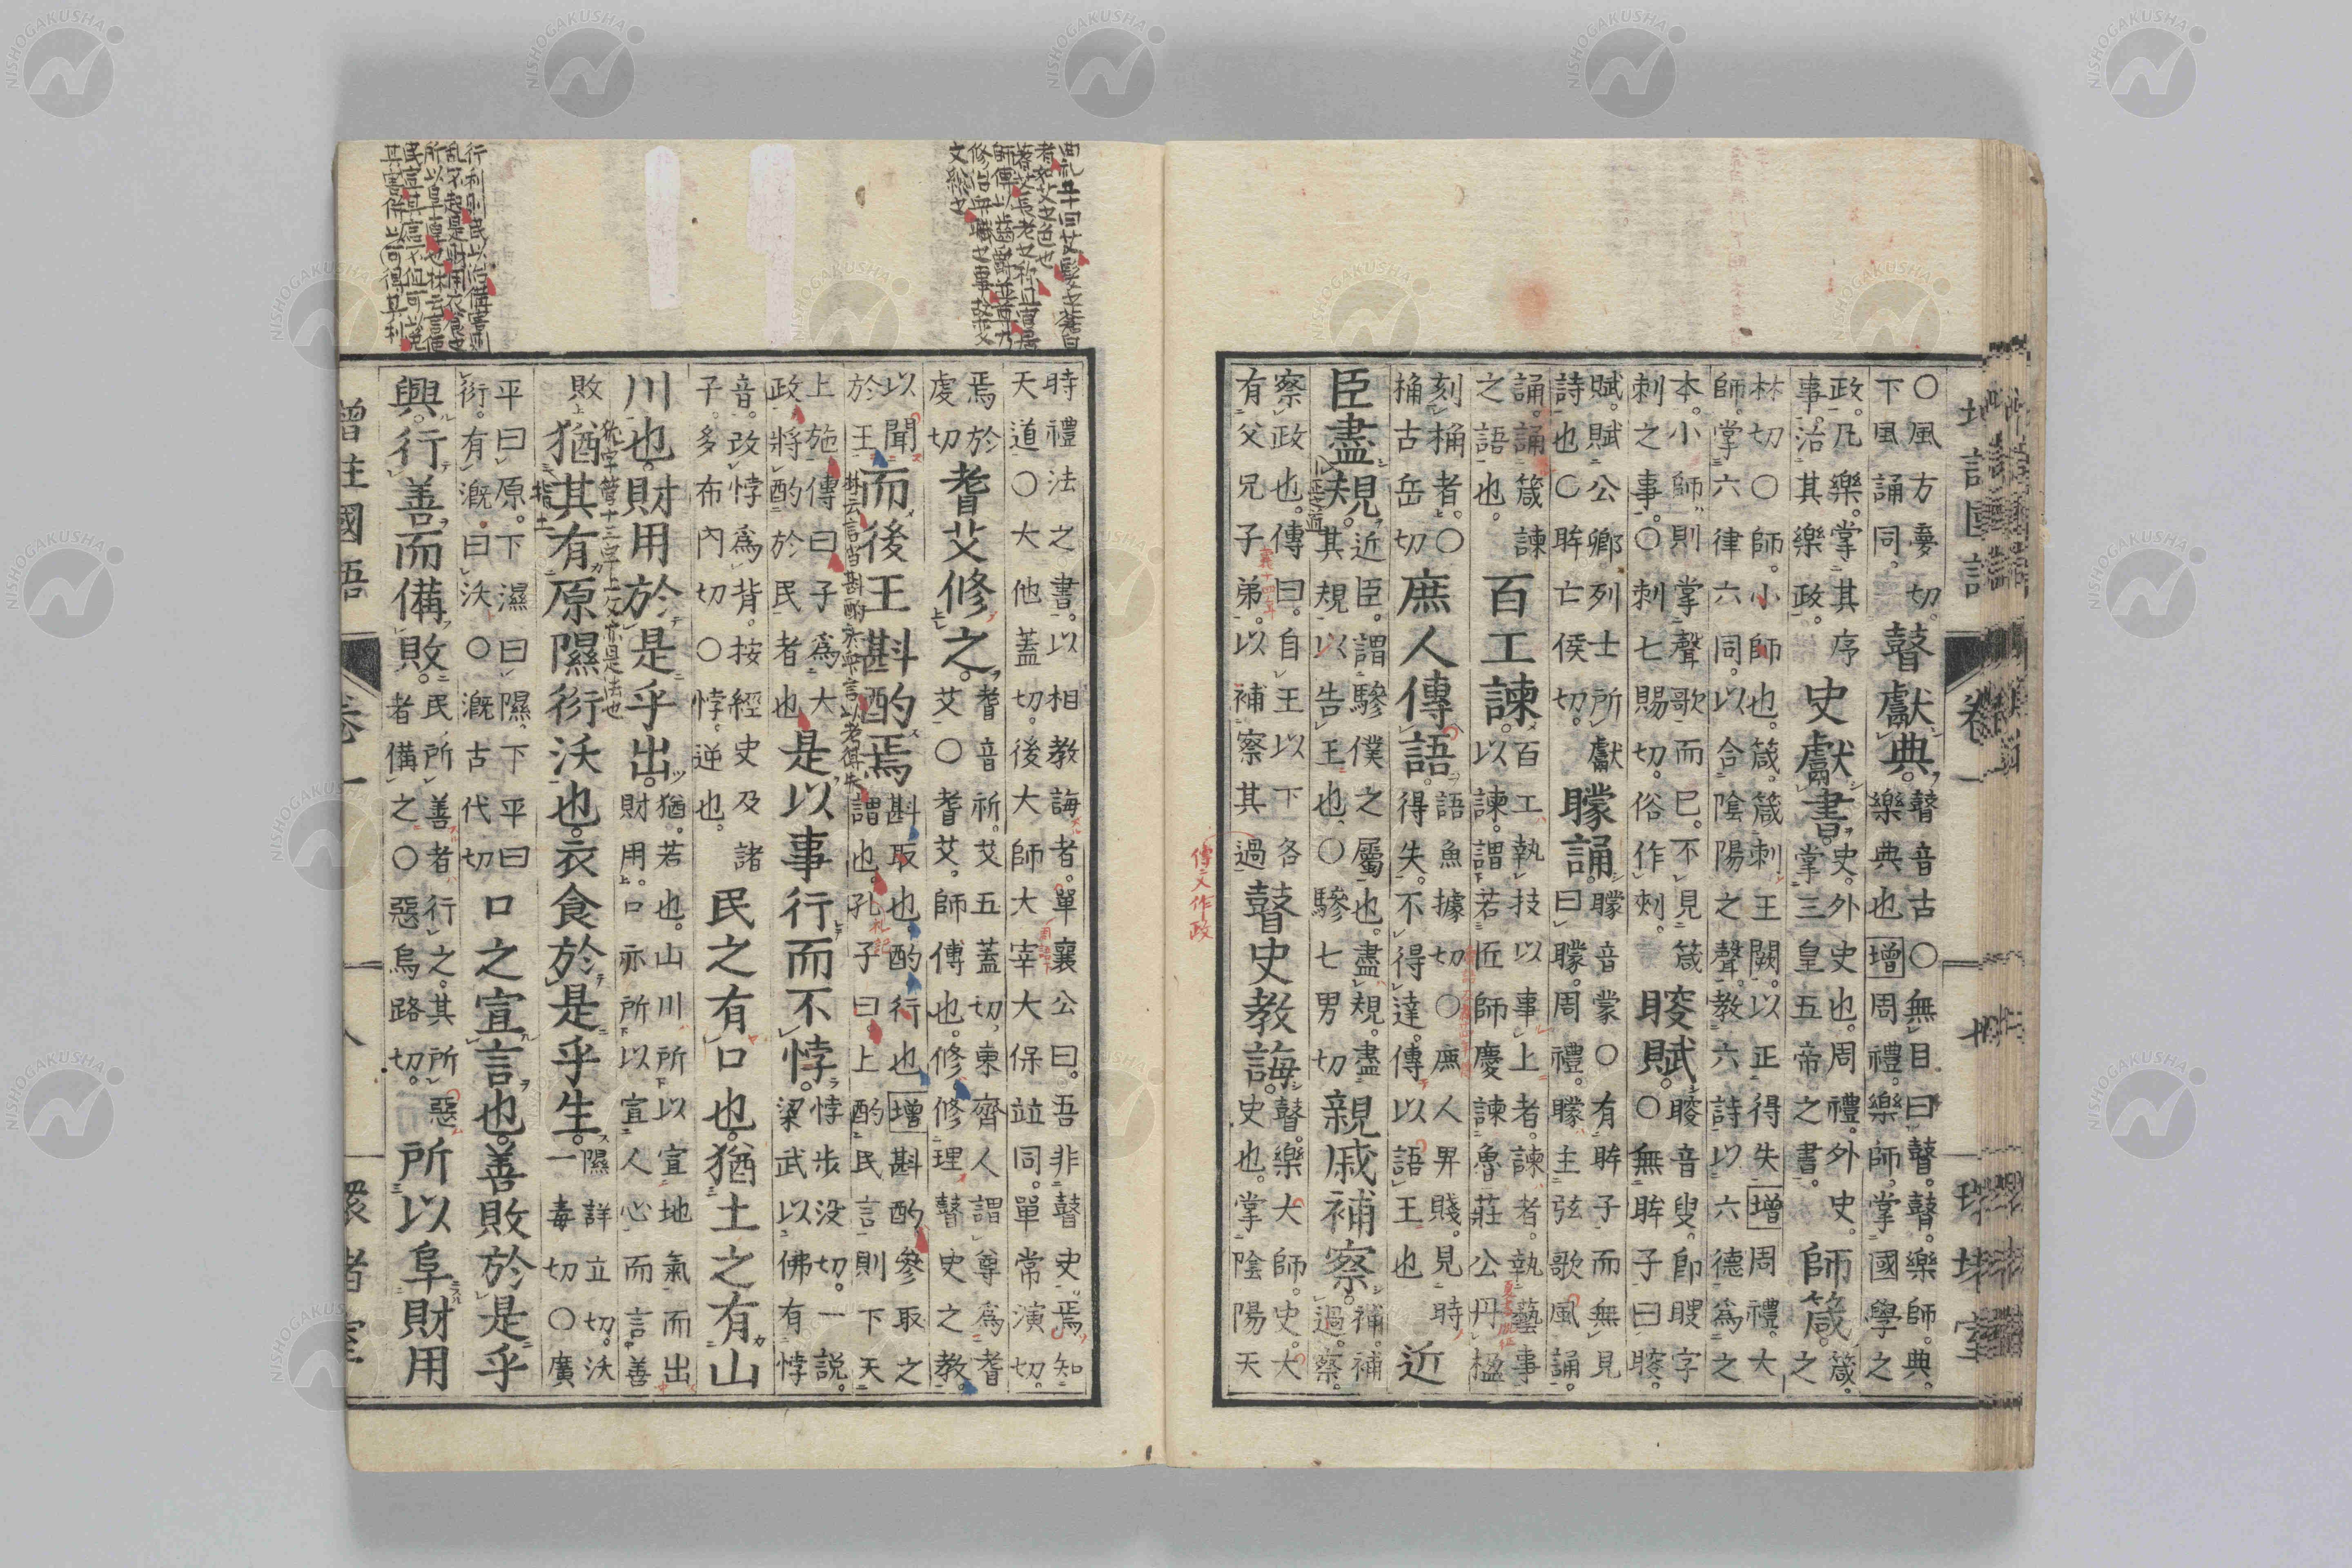 ○風方鳳切。
下風誦同。
瞽獻典。
瞽音古○無目曰瞽。瞽。樂師。典。
樂典也增周禮。樂師。掌國學之
政。凡樂。掌其序
事治其樂政。
史獻書。
史。外史也。周禮。外史。
掌三皇五帝之書。
師箴。
箴。
之
林切○師。小師也。箴。箴刺王闕。以正得失增周禮。大
師。掌六律六同。以合陰陽之聲。教六詩。以六德爲之
本。小師。則掌聲歌而已。不見箴
刺之事。○刺七賜切。俗作刾。
瞍賦。
瞍音叟。卽瞍字
○無眸子曰瞍。
賦。賦公卿列士所獻
詩也○眸亡侯切。
矇誦。
矇音蒙○有眸子而無見
曰矇。周禮。矇主弦歌風誦。
誦。誦箴諫
之語也。
百工諫。
百工。執技以事上者。諫者。執藝事
以諫。謂若匠師慶諫魯莊公丹楹
刻桷者。○
桷古岳切
庶人傳語。
語魚據切○庶人卑賤。見時
得失。不得達。傳以語王也
近
臣盡規。
近臣。謂驂僕之屬也。盡規。盡
其規以告王也。○驂七男切
親戚補察。
補。補
過。察。
察政也。傳曰。自王以下各
有父兄子弟。以補察其過
瞽史教誨。
瞽。樂大師。史。大
史也。掌陰陽天
傳文作政
時禮法之書。以相教誨者。單襄公曰。吾非瞽史。焉知
天道○大他蓋切。後大師大宰大保竝同。單常演切。
焉於
虔切
耆艾修之。
耆音祈。艾五蓋切。東齊人謂尊爲耆
艾○耆艾。師傅也。修。修理。瞽史之教。
以聞
於王
而後王斟酌焉
斟取也。酌行也增斟酌。參取之
謂也。孔子曰。上酌民言則下天
上施。傳曰子爲大
政將酌於民者也
是以事行而不悖。
悖步沒切。一説。
梁武以佛有悖
音。改悖爲背。按經史及諸
子。多布內切○悖。逆也。
民之有口也。猶土之有山
川也。財用於是乎出。
猶。若也。山川所以宣地氣而出
財用。口亦所以宣人心而言善
敗
猶其有原隰衍沃也。衣食於是乎生。
隰詳立切。沃
一毒切○廣
平曰原。下濕曰隰。下平曰
衍。有漑。曰沃。○漑古代切
口之宣言也。善敗於是乎
興。行善而備敗。
民所善者。行之。其所惡
者備之○惡烏路切。
所以阜財用
NISHOGAKUSHA